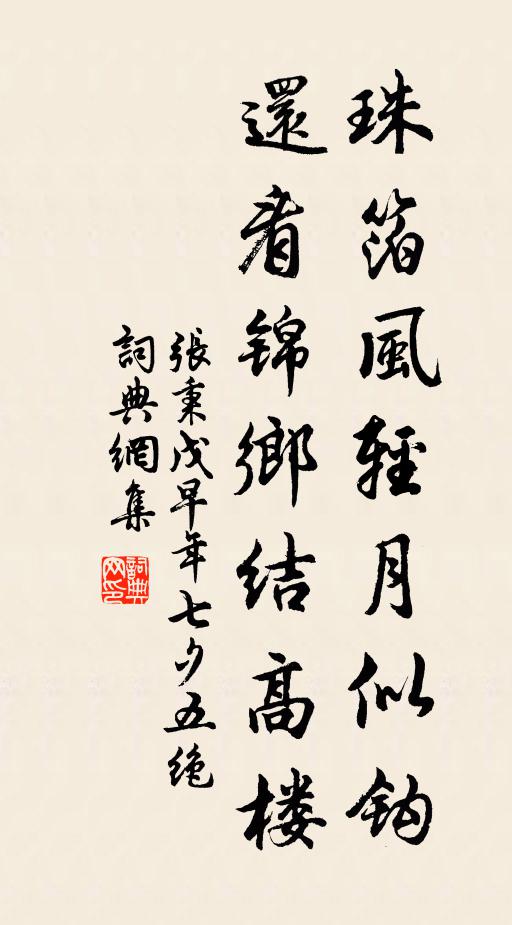 珠箔風輕月似鈎
還看錦鄉結高楼
張秉戊早年七夕五绝
詞典網集
詞典
网印